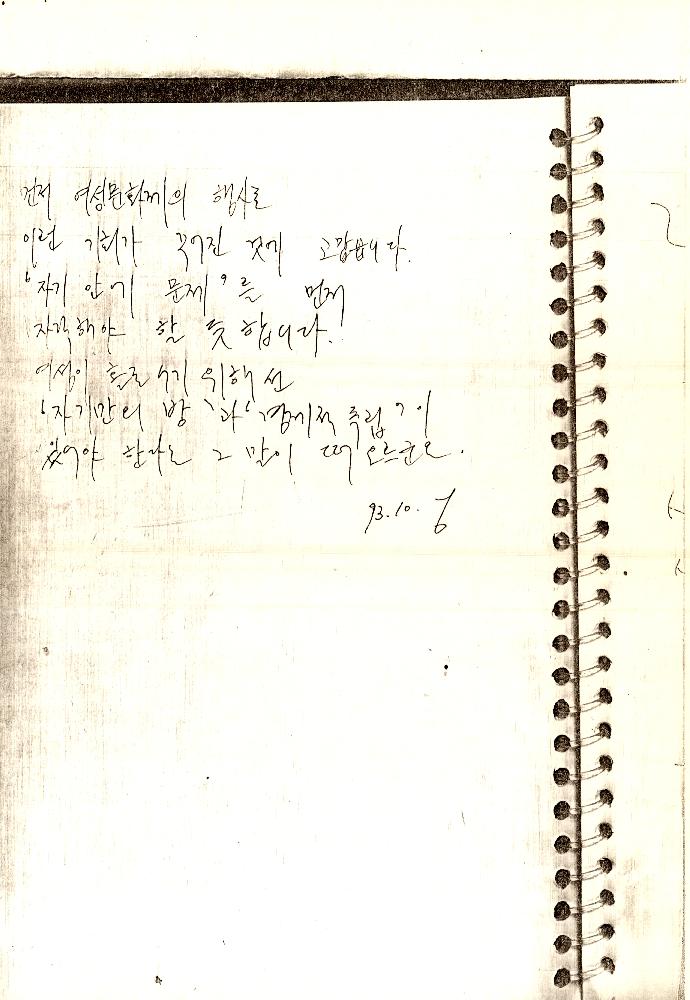 여성문화제의 행사로
이런 기회가 주어진 것에 고맙습니다.
'자기 안 기 문제'를 먼저
자각해야 할 듯 합니다.
여성이 홀로 서기 위해선
'자기만의 방'과 '경제적 독립'이
있어야 한다는 그 말이 떠오르군요.
93.10.